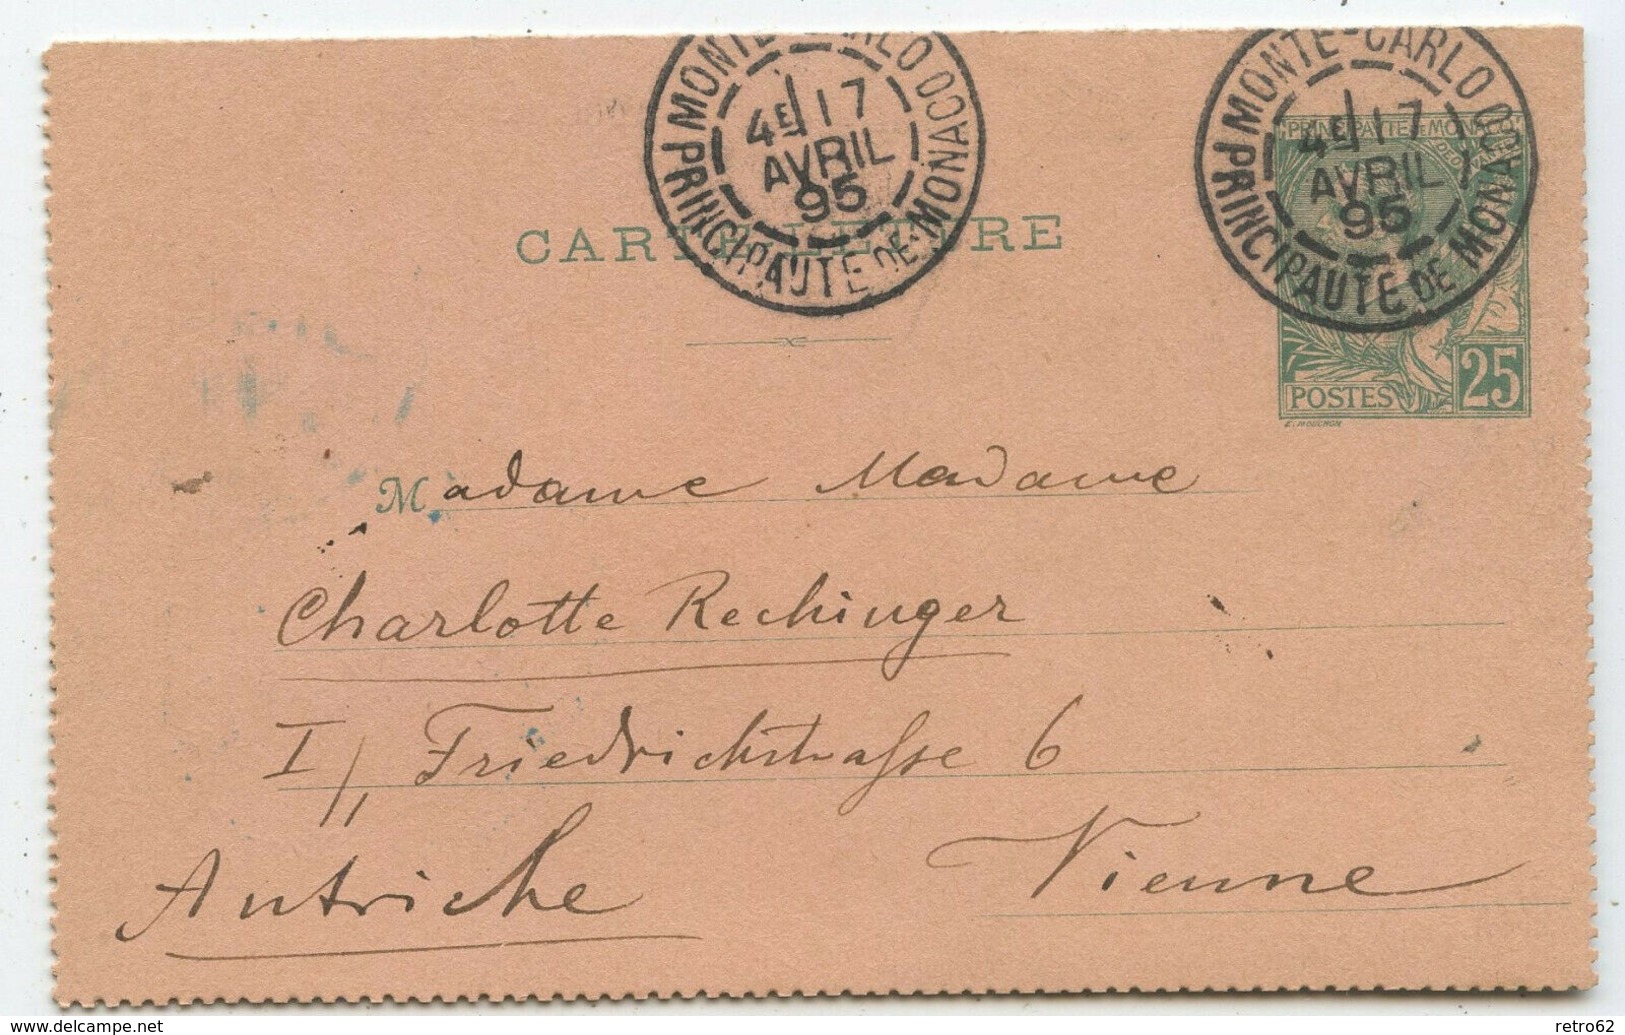 MONTE-CARLO
4E 17
AVRIL
95
PRINCIPAUTÉ DE MONACO
MONTE-CARLO
4E 17
AVRIL
95
PRINCIPAUTÉ DE MONACO
PRINCIPAUTÉ DE MONACO
CARTE-LETTRE
POSTES 25
E. MOUCHON
Madame Madame
Charlotte Rechinger
I, Friedrichstrasse 6
Vienne
Autriche
delcampe.net
retro62